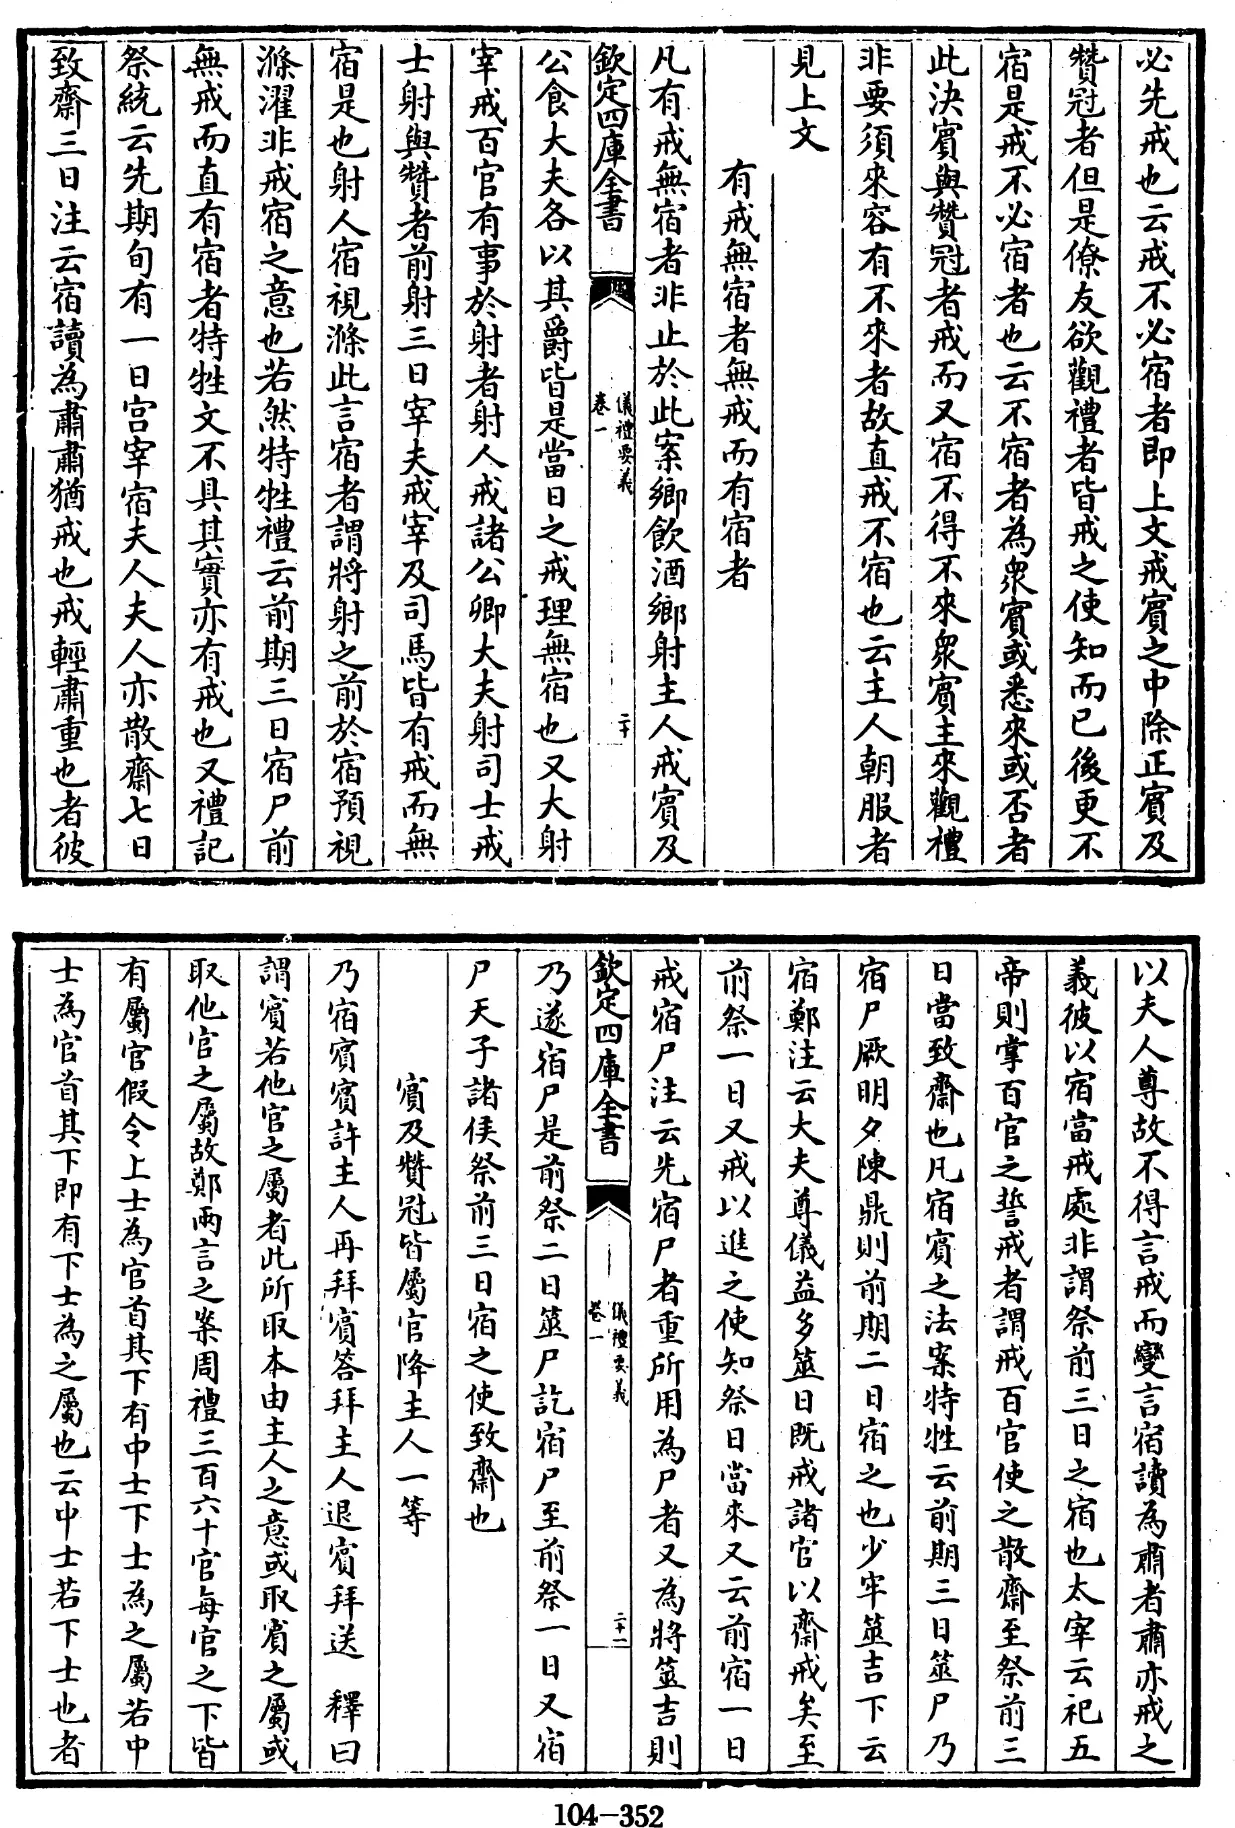 必先戒也云戒不必宿者即上文戒賔之中除正賔及
贊冠者但是僚友欲觀禮者皆戒之使知而已後更不
宿是戒不必宿者也云不宿者為衆賔或悉來或否者
此決賔與贊冠者戒而又宿不得不來衆賔主來觀禮
非要須來容有不來者故直戒不宿也云主人朝服者
見上文
有戒無宿者無戒而有宿者
凡有戒無宿者非止於此案鄉飲酒鄉射主人戒賔及
欽定四庫全書
儀禮要義
卷一
二十
公食大夫各以其爵皆是當日之戒理無宿也又大射
宰戒百官有事於射者射人戒諸公卿大夫射司士戒
士射與贊者前射三日宰夫戒宰及司馬皆有戒而無
宿是也射人宿視滌此言宿者謂將射之前於宿預視
滌濯非戒宿之意也若然特牲禮云前期三日宿尸前
無戒而直有宿者特牲文不具其實亦有戒也又禮記
祭統云先期旬有一日宫宰宿夫人夫人亦散齋七日
致齋三日注云宿讀為肅肅猶戒也戒輕肅重也者彼
以夫人尊故不得言戒而變言宿讀為肅者肅亦戒之
義彼以宿當戒處非謂祭前三日之宿也太宰云祀五
帝則掌百官之誓戒者謂戒百官使之散齋至祭前三
日當致齋也凡宿賔之法案特牲云前期三日筮尸乃
宿尸厥明夕陳鼎則前期二日宿之也少牢筮吉下云
宿鄭注云大夫尊儀益多筮日既戒諸官以齋戒矣至
前祭一日又戒以進之使知祭日當來又云前宿一日
戒宿尸注云先宿尸者重所用為尸者又為將筮吉則
欽定四庫全書
儀禮要義
卷一
二十一
乃遂宿尸是前祭二日筮尸訖宿尸至前祭一日又宿
尸天子諸侯祭前三日宿之使致齋也
賔及贊冠皆屬官降主人一等
乃宿賔賔許主人再拜賔答拜主人退賔拜送 釋曰
謂賔若他官之屬者此所取本由主人之意或取賔之屬或
取他官之屬故鄭兩言之案周禮三百六十官每官之下皆
有屬官假令上士為官首其下有中士下士為之屬若中
士為官首其下即有下士為之屬也云中士若下士也者
104-352